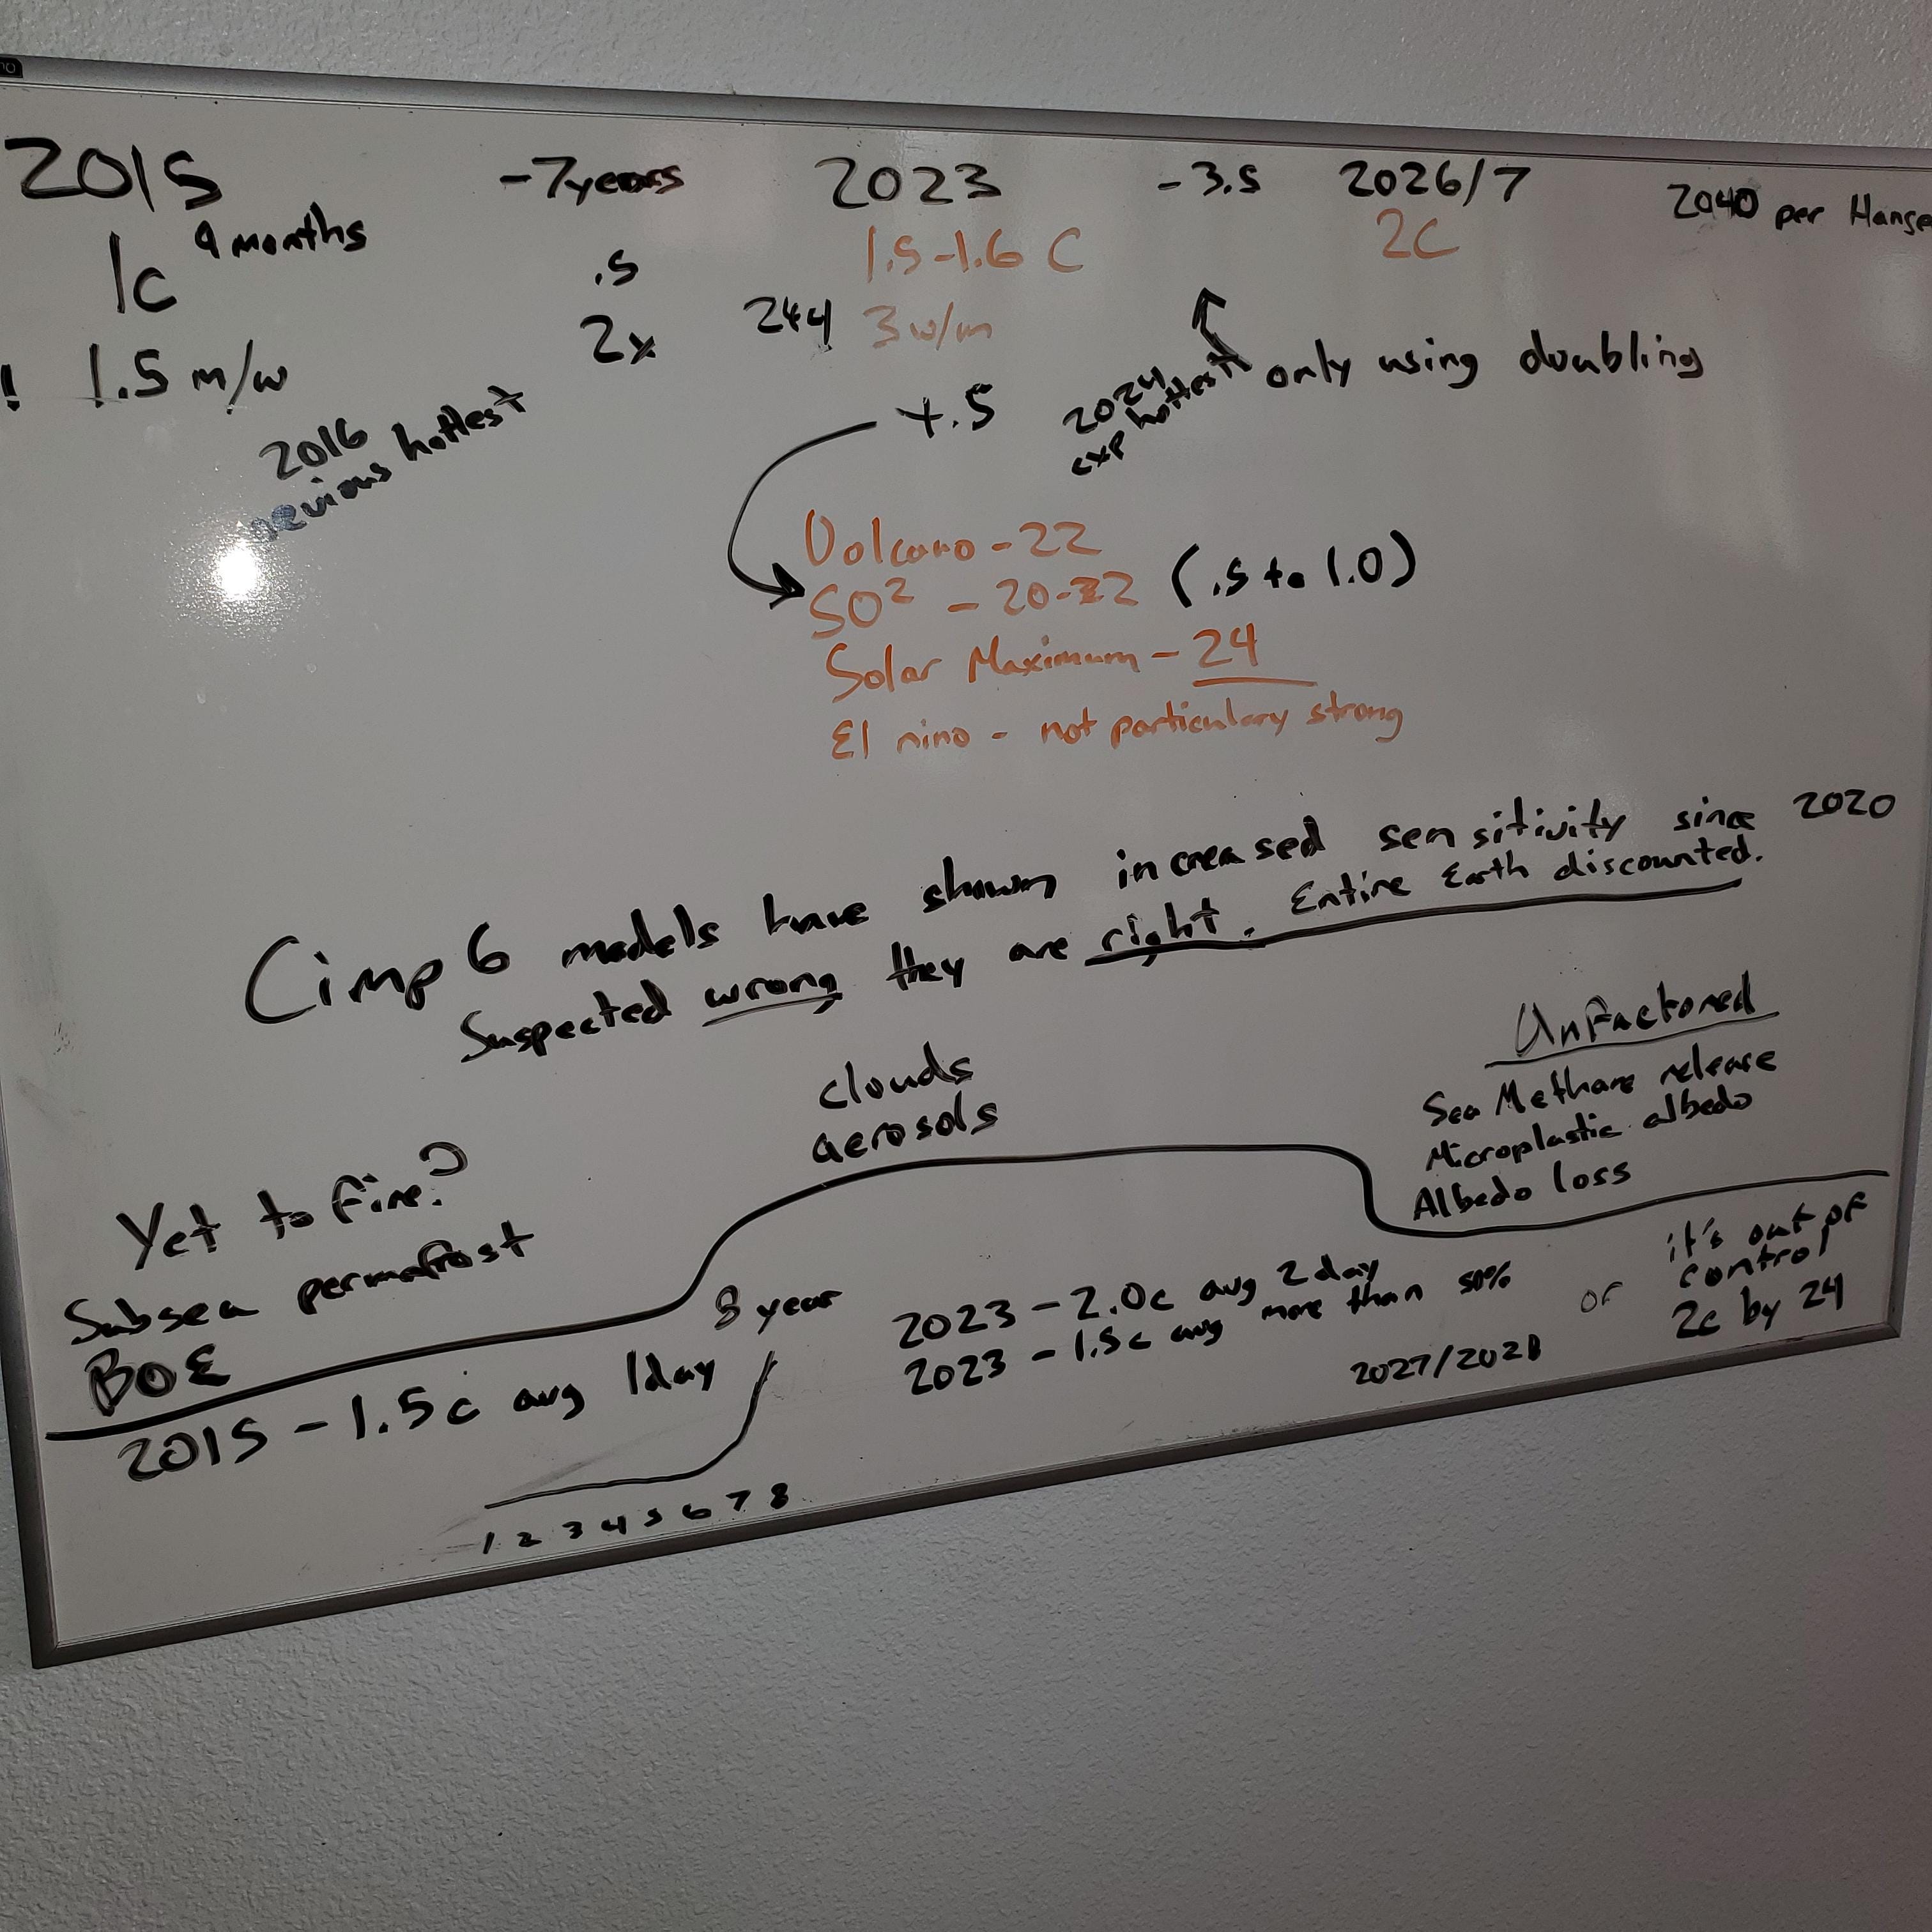 2015 -7years 2023 -3.5 2026/7 2040 per Hanse
9 months
1c .5 1.5-1.6 C 2C
! 1.5 m/w 2x 244 3 w/m
2016
previous hottest
+.5
2024
exp hottest
only using doubling
Volcano - 22
SO² - 20-22 (.5 to 1.0)
Solar Maximum - 24
El nino - not particulary strong
Cimp 6 models have shown increased sensitivity since 2020
Suspected wrong they are right. Entire Earth discounted.
clouds
aerosols
Unfactored
Sea Methane release
Microplastic albedo
Albedo loss
Yet to fire?
Subsea permafrost
BOE
2015 - 1.5c avg 1day
8 year
1 2 3 4 5 6 7 8
2023 - 2.0c avg 2 day
2023 - 1.5c avg more than 50%
2027/2028
or
it's out of
control
2c by 24